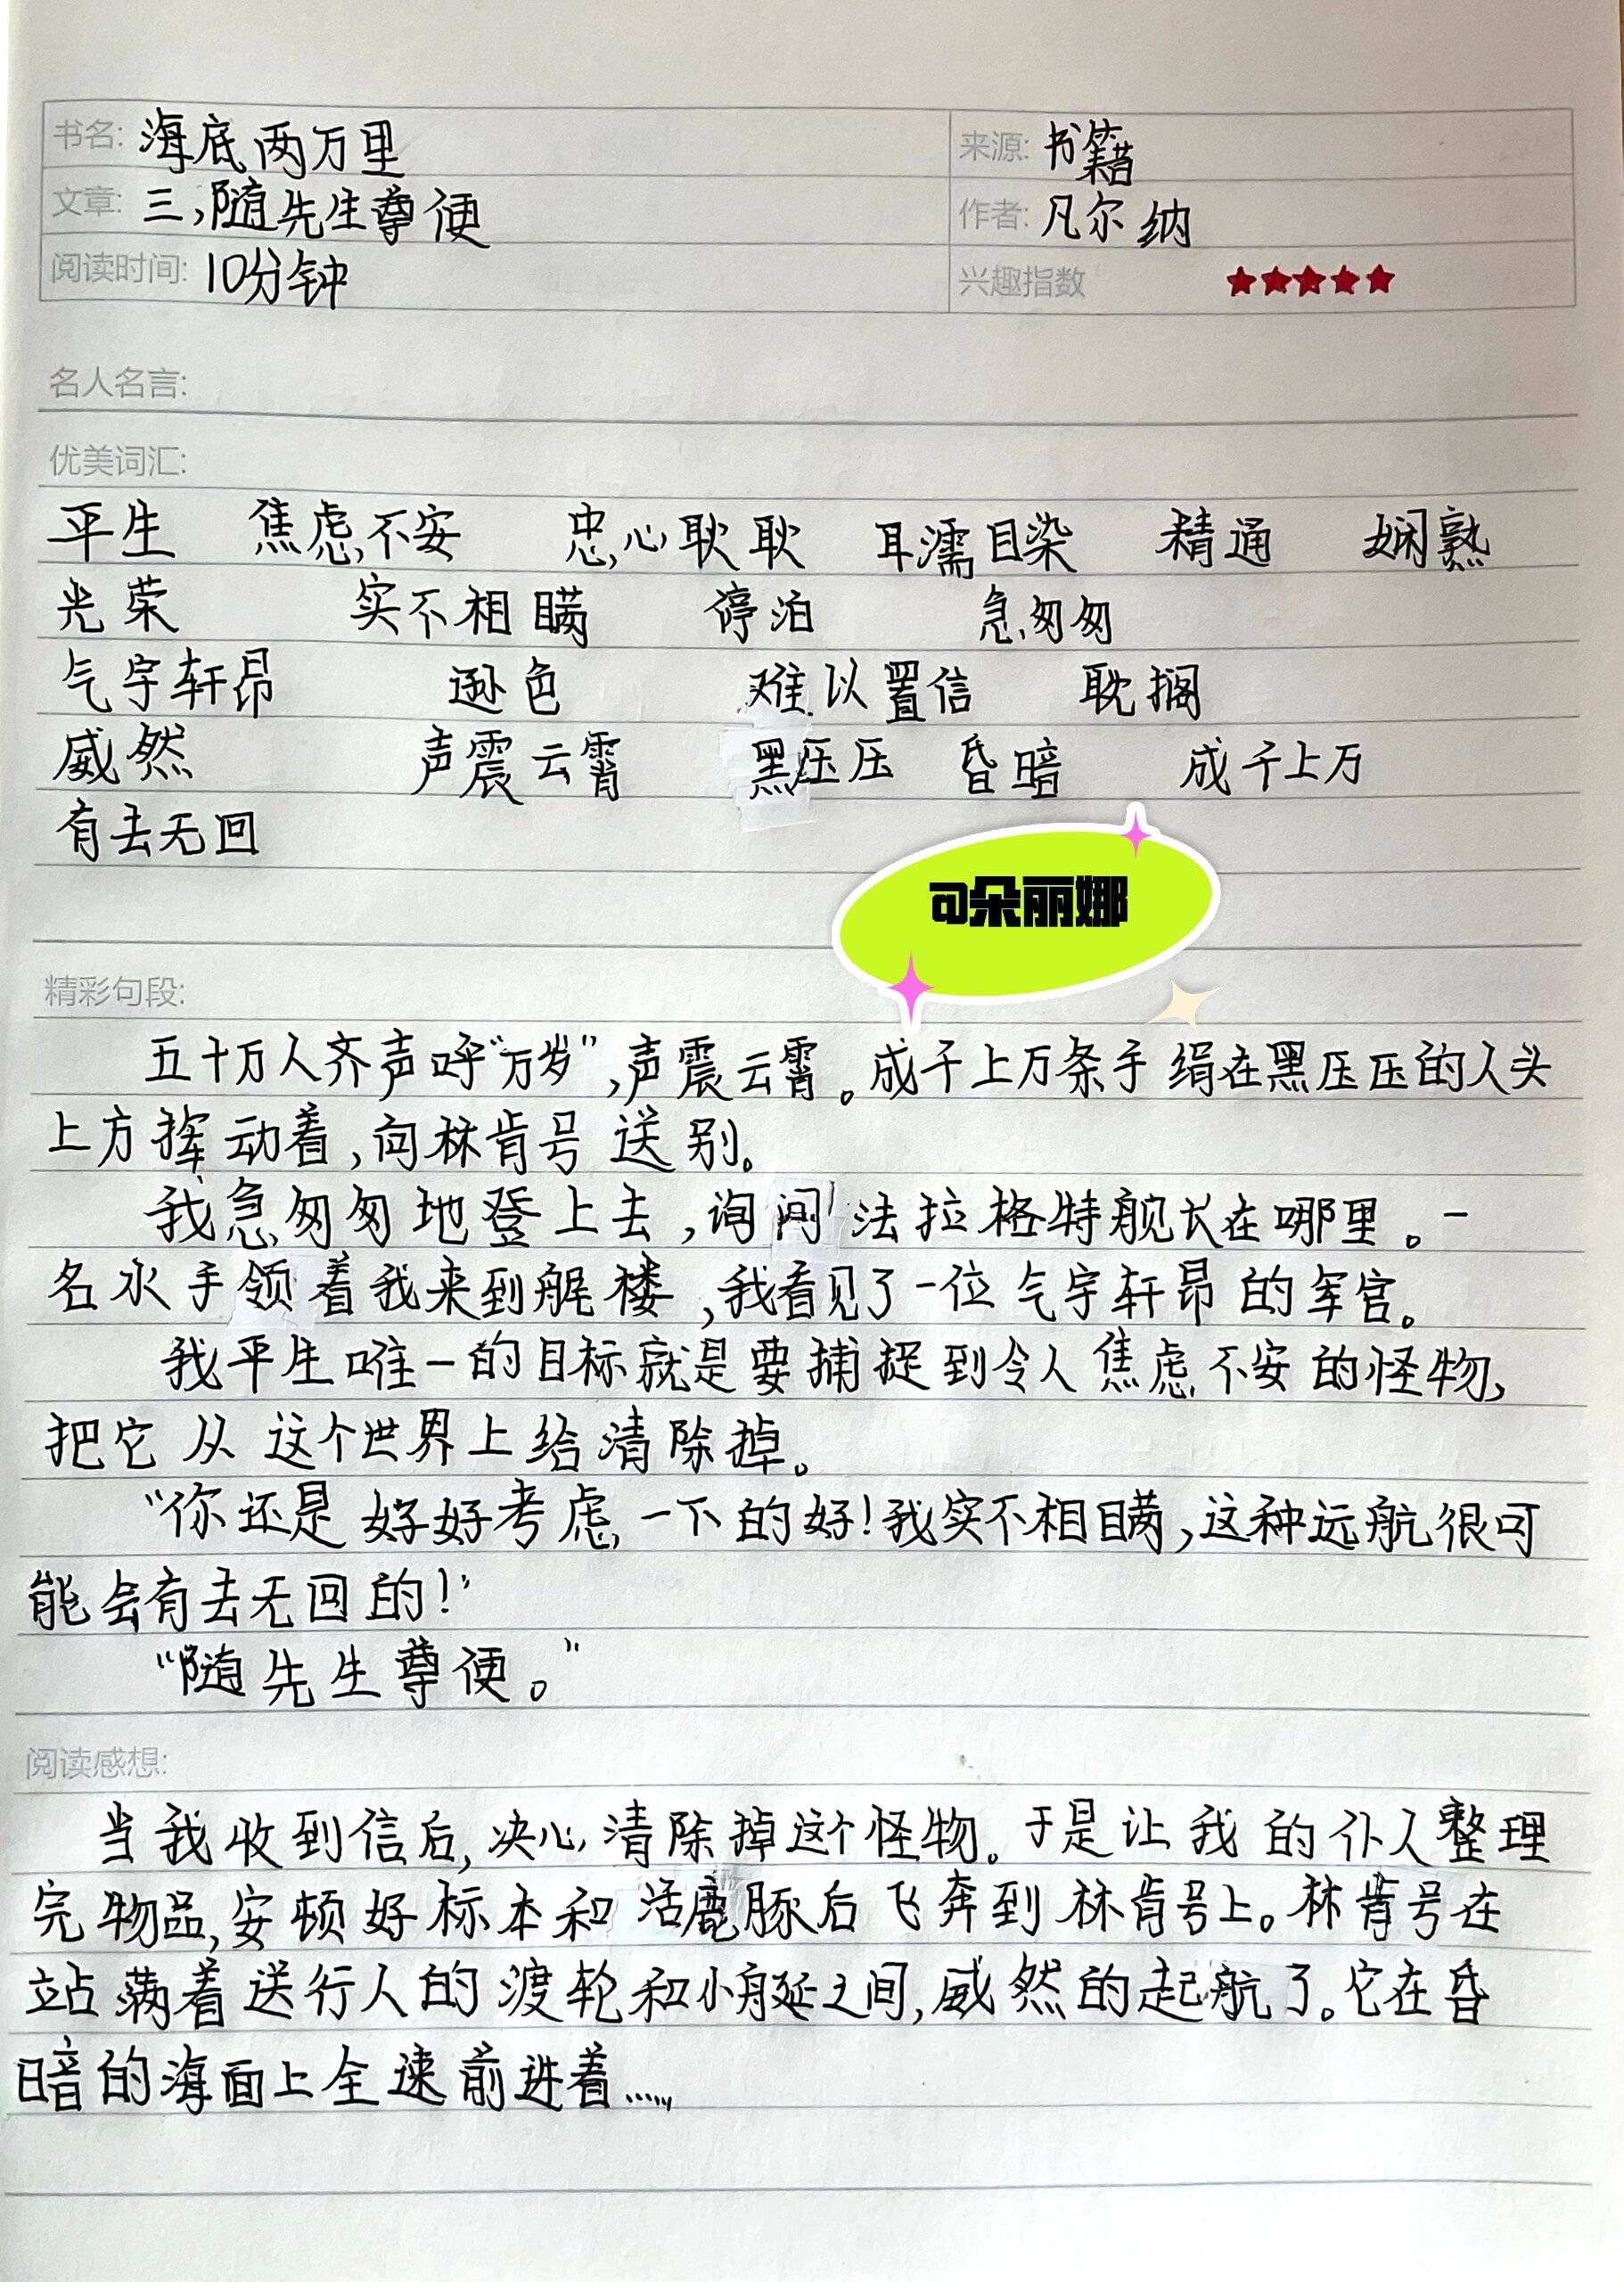 书名: 海底两万里 来源: 书籍
文章: 三,随先生尊便 作者: 凡尔纳
阅读时间: 10分钟 兴趣指数 ★★★★★
名人名言:
优美词汇:
平生 焦虑不安 忠心耿耿 耳濡目染 精通 娴熟
光荣 实不相瞒 停泊 急匆匆
气宇轩昂 逊色 难以置信 耽搁
威然 声震云霄 黑压压 昏暗 成千上万
有去无回
@朵丽娜
精彩句段:
五十万人齐声呼“万岁”,声震云霄。成千上万条手绢在黑压压的人头
上方挥动着,向林肯号送别。
我急匆匆地登上去,询问法拉格特舰长在哪里。一
名水手领着我来到艉楼,我看见了一位气宇轩昂的军官。
我平生唯一的目标就是要捕捉到令人焦虑不安的怪物,
把它从这个世界上给清除掉。
“你还是好好考虑一下的好!我实不相瞒,这种远航很可
能会有去无回的!”
“随先生尊便。”
阅读感想:
当我收到信后,决心清除掉这个怪物。于是让我的仆人整理
完物品,安顿好标本和活鹿豚后飞奔到林肯号上。林肯号在
站满着送行人的渡轮和小艇之间,威然的起航了。它在昏
暗的海面上全速前进着......